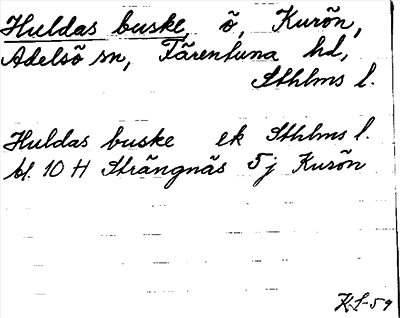 Huldas buske, ö, Kurön,
Adelsö sn, Färentuna hd,
Sthlms l.
Huldas buske ek Sthlms l.
bl. 10 H Strängnäs 5j Kurön
K.L-59